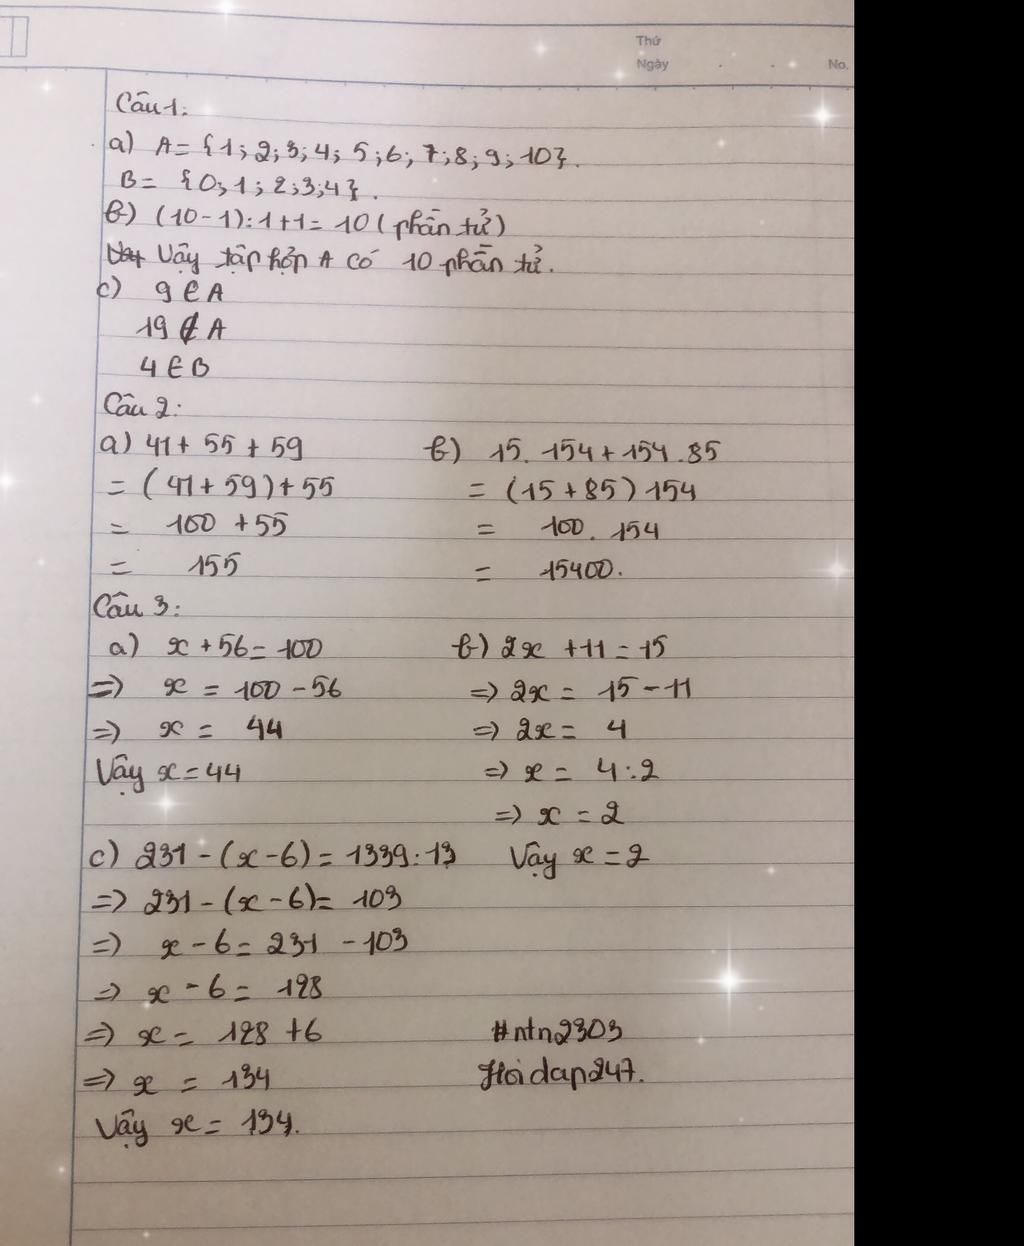 Thứ
Ngày . . No.
Câu 1:
a) A = {1; 2; 3; 4; 5; 6; 7; 8; 9; 10}.
B = {0; 1; 2; 3; 4}.
b) (10 - 1) : 1 + 1 = 10 (phần tử)
Vậy tập hợp A có 10 phần tử.
c) 9 ∈ A
19 ∉ A
4 ∈ B
Câu 2:
a) 41 + 55 + 59
= (41 + 59) + 55
= 100 + 55
= 155
b) 15. 154 + 154 .85
= (15 + 85) 154
= 100. 154
= 15400.
Câu 3:
a) x + 56 = 100
=> x = 100 - 56
=> x = 44
Vậy x = 44
b) 2x + 11 = 15
=> 2x = 15 - 11
=> 2x = 4
=> x = 4 : 2
=> x = 2
Vậy x = 2
c) 231 - (x - 6) = 1339 : 13
=> 231 - (x - 6) = 103
=> x - 6 = 231 - 103
=> x - 6 = 128
=> x = 128 + 6
=> x = 134
Vậy x = 134.
#ntn2303
Hoidap247.